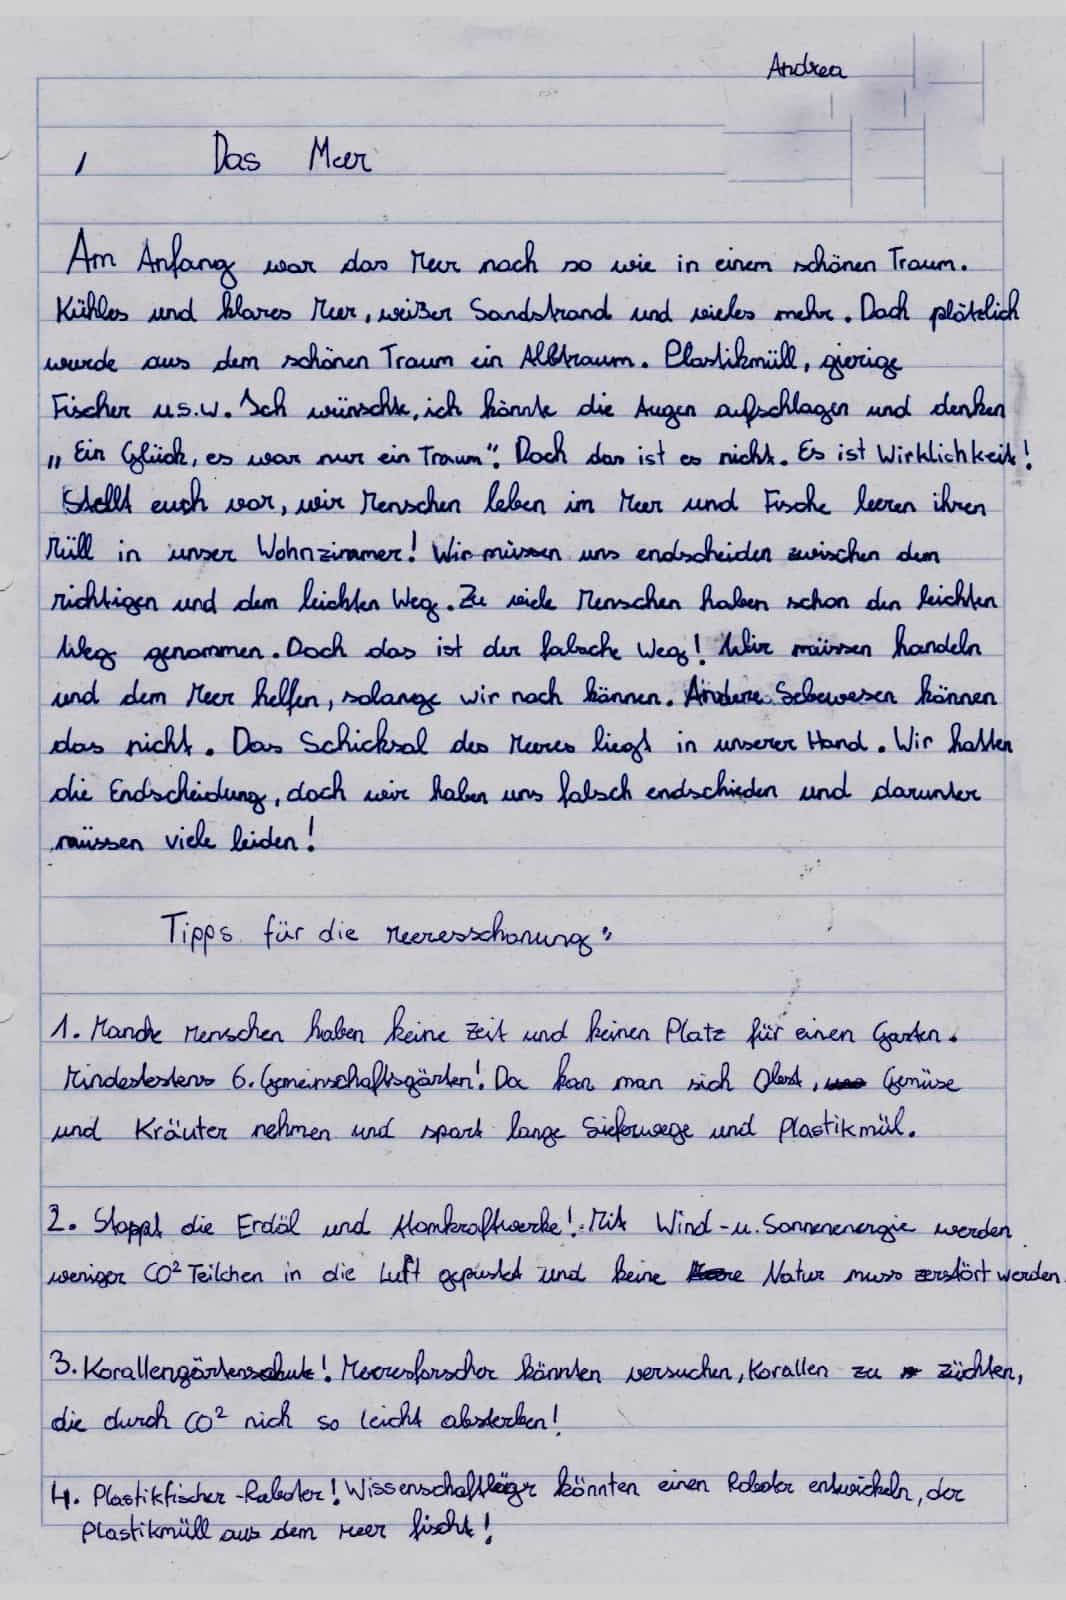 Andrea
Das Meer
Am Anfang war das Meer noch so wie in einem schönen Traum.
Kühles und klares Meer, weißer Sandstrand und vieles mehr. Doch plötzlich
wurde aus dem schönen Traum ein Albtraum. Plastikmüll, gierige
Fischer u.s.w. Ich wünschte, ich könnte die Augen aufschlagen und denken
„Ein Glück, es war nur ein Traum“. Doch das ist es nicht. Es ist Wirklichkeit!
Stellt euch vor, wir Menschen leben im Meer und Fische leeren ihren
Müll in unser Wohnzimmer! Wir müssen uns endscheiden zwischen dem
richtigen und dem leichten Weg. Zu viele Menschen haben schon den leichten
Weg genommen. Doch das ist der falsche Weg! Wir müssen handeln
und dem Meer helfen, solange wir noch können. Andere Lebewesen können
das nicht. Das Schicksal des Meeres liegt in unserer Hand. Wir hatten
die Endscheidung, doch wir haben uns falsch endschieden und darunter
müssen viele leiden!
Tipps für die Meeresschonung:
1. Manche Menschen haben keine Zeit und keinen Platz für einen Garten.
Mindestestens 6. Gemeinschaftsgärten! Da kan man sich Obst, Gemüse
und Kräuter nehmen und spart lange Lieferwege und Plastikmül.
2. Stoppt die Erdöl und Atomkraftwerke! Mit Wind-u. Sonnenenergie werden
weniger CO² Teilchen in die Luft gepustet und keine Natur muss zerstört werden
3. Korallengärtenschule! Meeresforscher könnten versuchen, Korallen zu züchten,
die durch CO² nich so leicht absterben!
4. Plastikfischer-Roboter! Wissenschaftler könnten einen Roboter entwickeln, der
Plastikmüll aus dem Meer fischt!